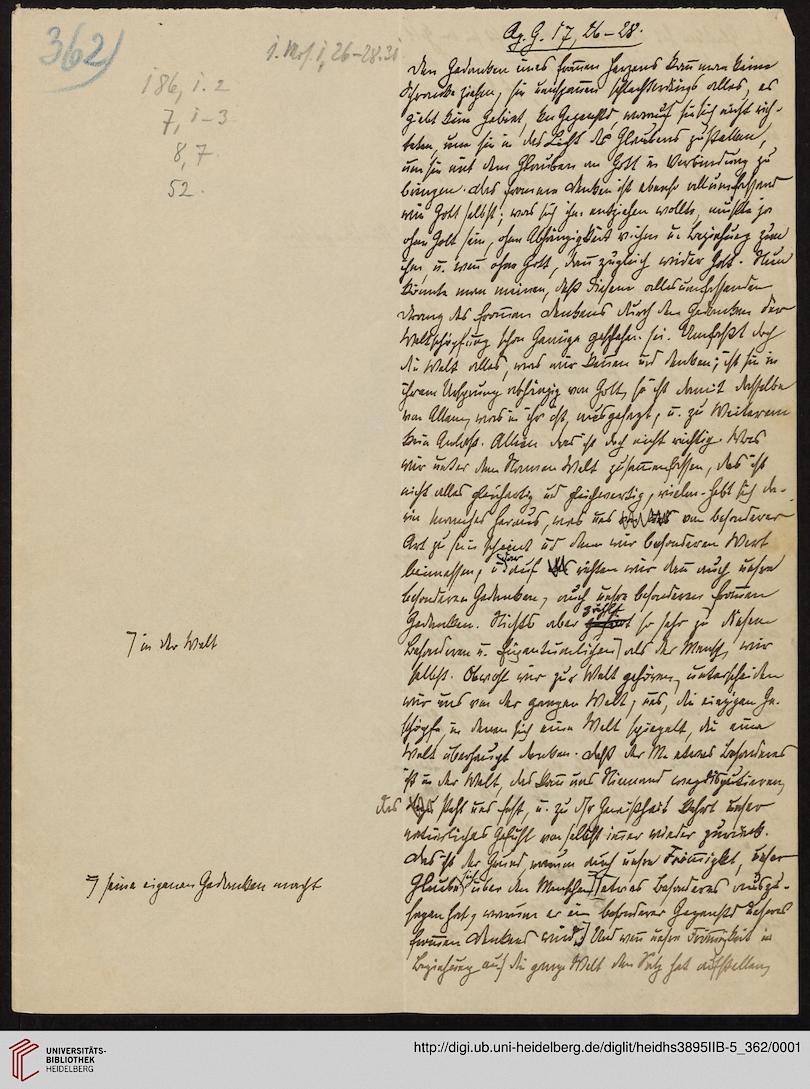 362)
1. Mos. 1, 26-28.31
186, 1. 2
7, 1-3
8, 7.
52.
Ag. G. 17, 26-28.
Den Gedanken eines from̅en Herzens kan̅ man keine
Schranke ziehen, sie umspan̅en schlechterdings alles, es
giebt kein Gebiet, kein Gegenstd, worauf sie sich nicht rich-
teten, um sie in das Licht des Glaubens zu stellen,
um sie mit dem Glauben an Gott in Verbindung zu
bringen. Das fromme Denken ist ebenso allumfassend
wie Gott selbst; was sich ihm entziehen wollte, müßte ja
ohne Gott sein, ohne Abhängigkeit v. ihm u. Beziehung zum
ihm, u. wen̅ ohne Gott, dan̅ zugleich wider Gott. Nun
könnte man meinen, daß diesem allesumfassenden
Drang des from̅en Denkens durch den Gedanken der
Weltschöpfung schon Genüge geschehen sei. Umfaßt doch
die Welt alles, was wir ken̅en und denken; ist sie in
ihrem Ursprung abhängig von Gott, so ist damit dasselbe
von Allem, was in ihr ist, ausgesagt, u. zu Weiterem
kein Anlaß. Allein das ist doch nicht richtig. Was
wir unter dem Namen Welt zusam̅enfassen, das ist
nicht alles gleichartig und gleichwertig, vielm. hebt sich da-
rin manches heraus, was uns von besonderer
Art zu sein scheint und dem wir besonderen Wert
beimessen, u. darauf richten wir dan̅ auch unsre
besonderen Gedanken, auch unsre besonderen from̅en
Gedanken. Nichts aber zählt so sehr zu diesem
Besonderen u. Eigentümlichen ⁊ als der Mensch, wir
⁊ in der Welt
selbst. Obwohl wir zur Welt gehören, unterscheiden
wir uns von der ganzen Welt, uns, die einzigen Ge-
schöpfe in denen sich eine Welt spiegelt, die eine
Welt überhaupt denken. Daß der M. etwas Besonderes
ist in der Welt, das kan̅ uns Niemand wegdisputieren,
das steht uns fest, u. zu dsr Gewißheit kehrt unser
natürliches Gefühl von selbst im̅er wieder zurück.
Das ist der Grund, warum auch unsre From̅igkt, unser
Glaube sich über den Menschen ⁊ etwas Besonderes auszu-
⁊ seine eigenen Gedanken macht
sagen hat, warum er ein besonderer Gegenstd unseres
from̅en Denkens wird. Und wen̅ unsre From̅igkeit in
Beziehung auf die ganze Welt den Satz hat aufstellen,
UNIVERSITÄTS-
BIBLIOTHEK
HEIDELBERG
http://digi.ub.uni-heidelberg.de/diglit/heidhs3895IIB-5_362/0001